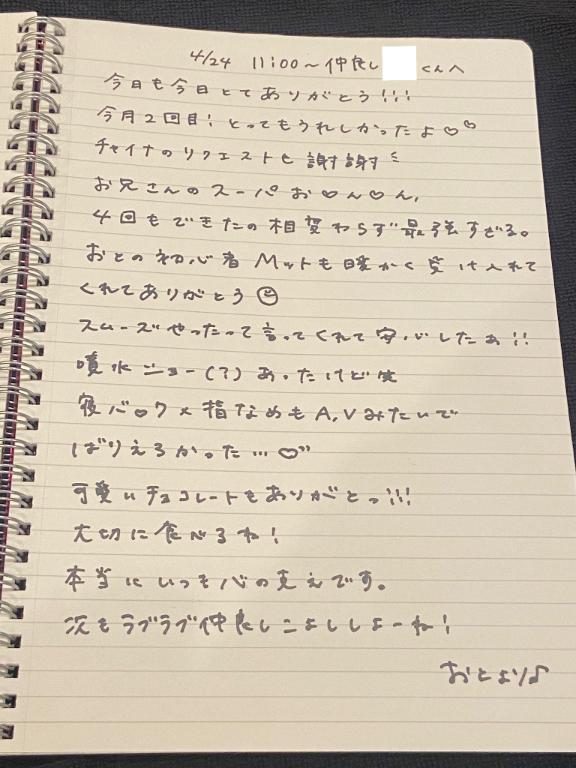 4/24 11:00〜仲良し くんへ
今日も今日とてありがとう!!!
今月2回目!とってもうれしかったよ♡♡
チャイナのリクエストも謝謝
お兄さんのスーパお♡ん♡ん,
4回もできたの相変わらず最強すぎる。
おとの初心者Mットも暖かく受け入れて
くれてありがとう☺
スムーズやったって言ってくれて安心したぁ!!
噴水ショー(?)あったけど笑
寝バックx指なめもA,Vみたいで
ばりえろかった…♡
可愛いチョコレートもありがとっ!!!
大切に食べるね!
本当にいつも心の支えです。
次もラブラブ仲良しこよししよーね!
おとより♪